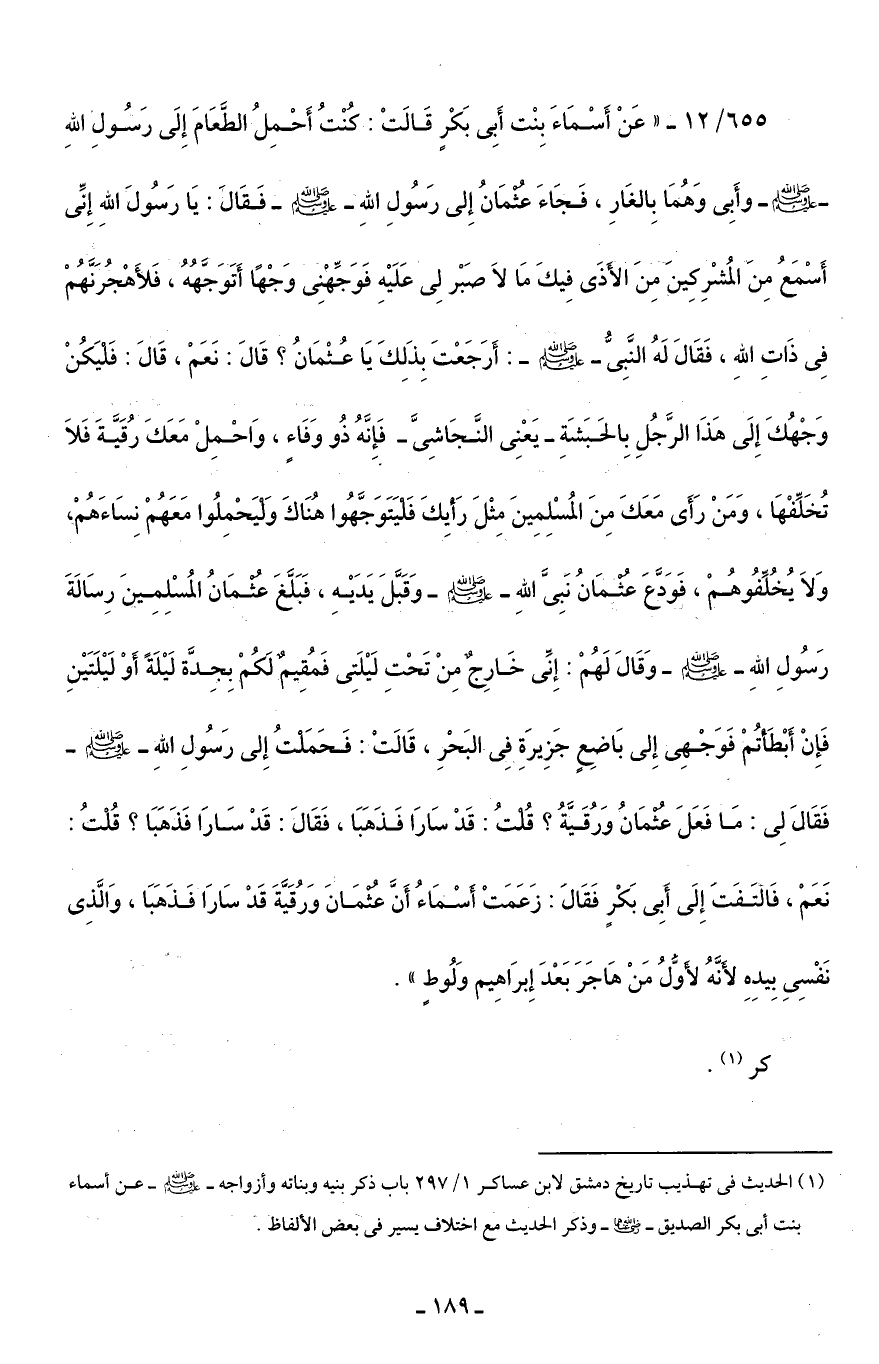 ٦٥٥/ ١٢ ـ « عَنْ أَسْمَاءَ بِنْت أَبِى بَكْرٍ قَالَتْ : كُنْتُ أَحْمِلُ الطَّعَامَ إِلَى رَسُولِ اللهِ
ـ ﷺ ـ وأَبِى وَهُمَا بِالغَارِ ، فَجَاءَ عُثْمَانُ إِلى رَسُولِ اللهِ ـ ﷺ ـ فَقَالَ : يَا رَسُولَ اللهِ إِنِّى
أَسْمَعُ مِنَ المُشْرِكِينَ مِنَ الأَذَى فِيكَ مَا لاَ صَبْر لِى عَلَيْهِ فَوَجِّهْنِى وَجْهًا أَتَوَجَّهُهُ ، فَلأَهْجُرَنَّهُمْ
فِى ذَاتِ اللهِ ، فَقَالَ لَهُ النَّبِىُّ ـ ﷺ ـ : أَرَجَعْتَ بِذَلِكَ يَا عُثْمَانُ ؟ قَالَ : نَعَمْ ، قَالَ : فَلْيَكُنْ
وَجْهُكَ إِلَى هَذَا الرَّجُلِ بِالحَبَشَةِ ـ يَعْنِى النَّجَاشِىَّ ـ فَإِنَّهُ ذُو وَفَاءٍ ، وَاحْمِلْ مَعَكَ رُقَيَّةَ فَلاَ
تُخَلِّفْهَا ، وَمَنْ رَأَى مَعَكَ مِنَ المُسْلِمِينَ مِثْلَ رَأيِكَ فَلْيَتَوَجَّهُوا هُنَاكَ وَلْيَحْمِلُوا مَعَهُمْ نِسَاءَهُمْ،
وَلاَ يُخْلِّفُوهُمْ ، فَوَدَّعَ عُثْمَانُ نَبِىَّ اللهِ ـ ﷺ ـ وَقَبَّلَ يَدَيْهِ ، فَبَلَّغَ عُثْمَانُ المُسْلِمِينَ رِسَالَةَ
رَسُولِ اللهِ ـ ﷺ ـ وَقَالَ لَهُمْ : إِنِّى خَارِجٌ مِنْ تَحْتِ لَيْلَتِى فَمُقِيمٌ لَكُمْ بِجِدَّة لَيْلَةً أَوْ لَيْلَتَيْنِ
فَإِنْ أَبْطَأتُمْ فَوَجْهِى إِلى بَاضِعٍ جَزِيرَةٍ فِى البَحْرِ ، قَالَتْ : فَحَمَلْتُ إِلى رَسُولِ اللهِ ـ ﷺ ـ
فَقَالَ لِى : مَا فَعَلَ عُثْمَانُ وَرُقَيَّةُ ؟ قُلْتُ : قَدْ سَارَا فَذَهَبَا ، فَقَالَ : قَدْ سَارَا فَذَهَبَا ؟ قُلْتُ :
نَعَمْ ، فَالْتَفَتَ إِلَى أَبِى بَكْرٍ فَقَالَ : زَعَمَتْ أَسْمَاءُ أَنَّ عُثْمَانَ وَرُقَيَّةَ قَدْ سَارَا فَذَهَبَا ، وَالَّذِى
نَفْسِى بِيدِهِ لأَنَّهُ لأَوَّلُ مَنْ هَاجَرَ بَعْدَ إِبرَاهِيم وَلُوطٍ » .
كر (١) .
(١) الحديث فى تهذيب تاريخ دمشق لابن عساكر ١/ ٢٩٧ باب ذكر بنيه وبناته وأزواجه ـ ﷺ ـ عن أسماء
بنت أبى بكر الصديق ـ رضي الله عنهما ـ وذكر الحديث مع اختلاف يسير فى بعض الألفاظ .
ـ ١٨٩ ـ